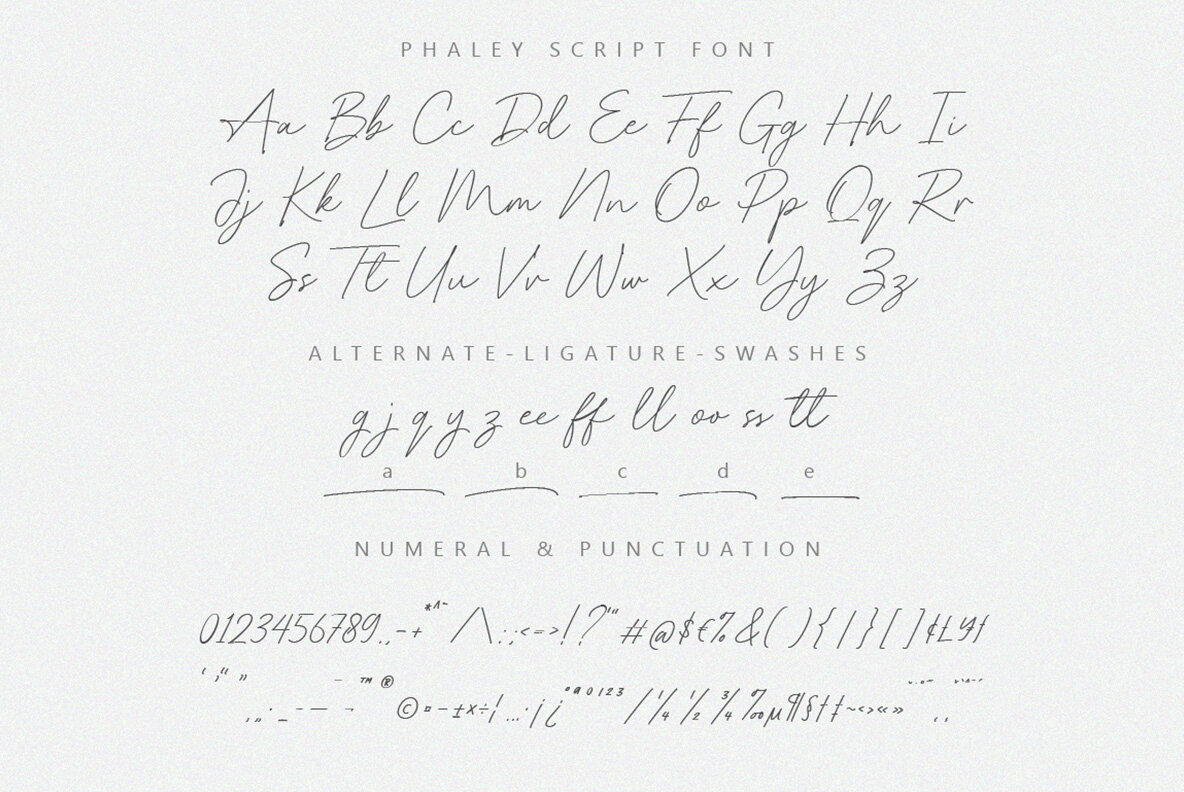 PHALEY SCRIPT FONT
Aa Bb Cc Dd Ee Ff Gg Hh Ii
Jj Kk Ll Mm Nn Oo Pp Qq Rr
Ss Tt Uu Vv Ww Xx Yy Zz
ALTERNATE-LIGATURE-SWASHES
g j q y z ee ff ll oo ss tt
a b c d e
NUMERAL & PUNCTUATION
0123456789.,-+*^~/\:;<=>!?'"#@$€%&(){|}[]¢£¥ƒ
‘ ’ “ ” ¯ ™ ®
‚ „ · _ - — ¬ © ¤ – ± × ÷ ! … · ¡ ¿ ° ª 0 1 2 3 / ¼ ½ ¾ ‰ µ ¶ § † ‡ ~ ‹ › « »